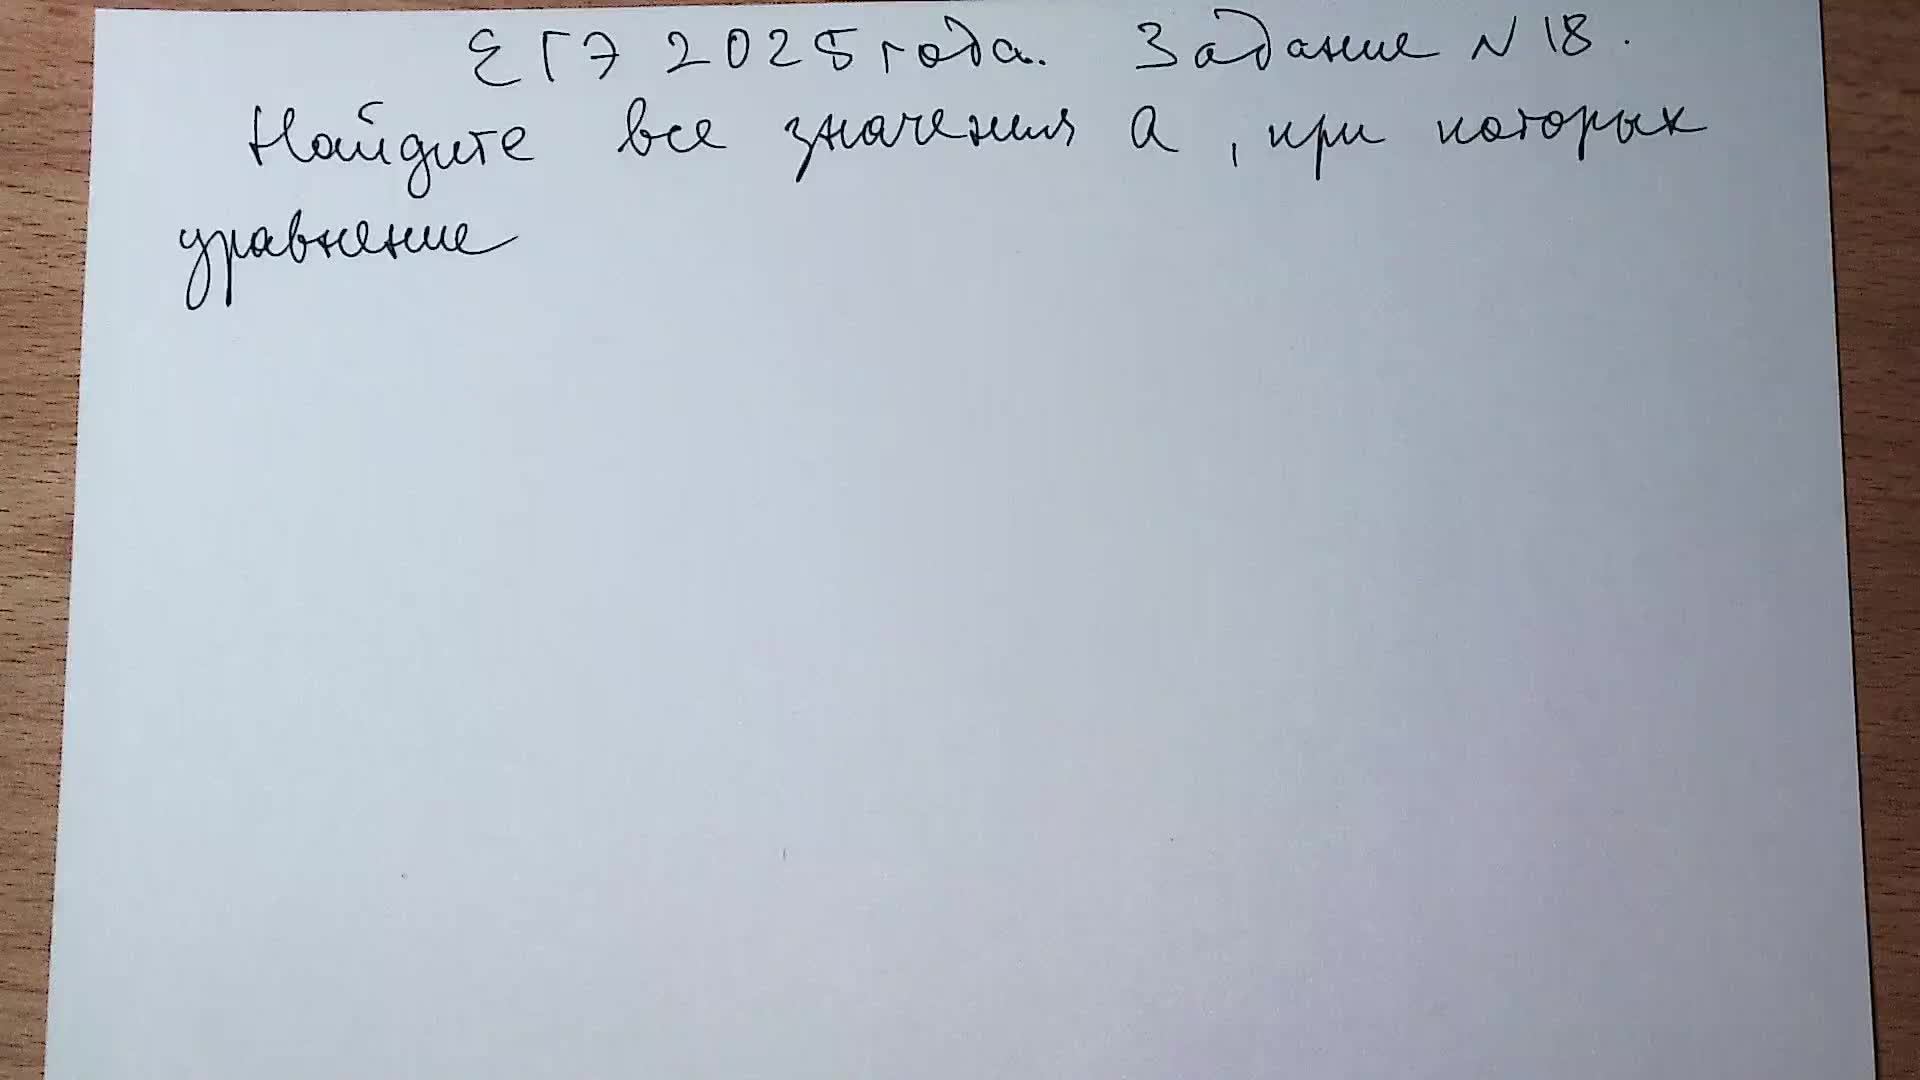 ЕГЭ 2025 года. Задание N 18.
Найдите все значения а, при которых
уравнение